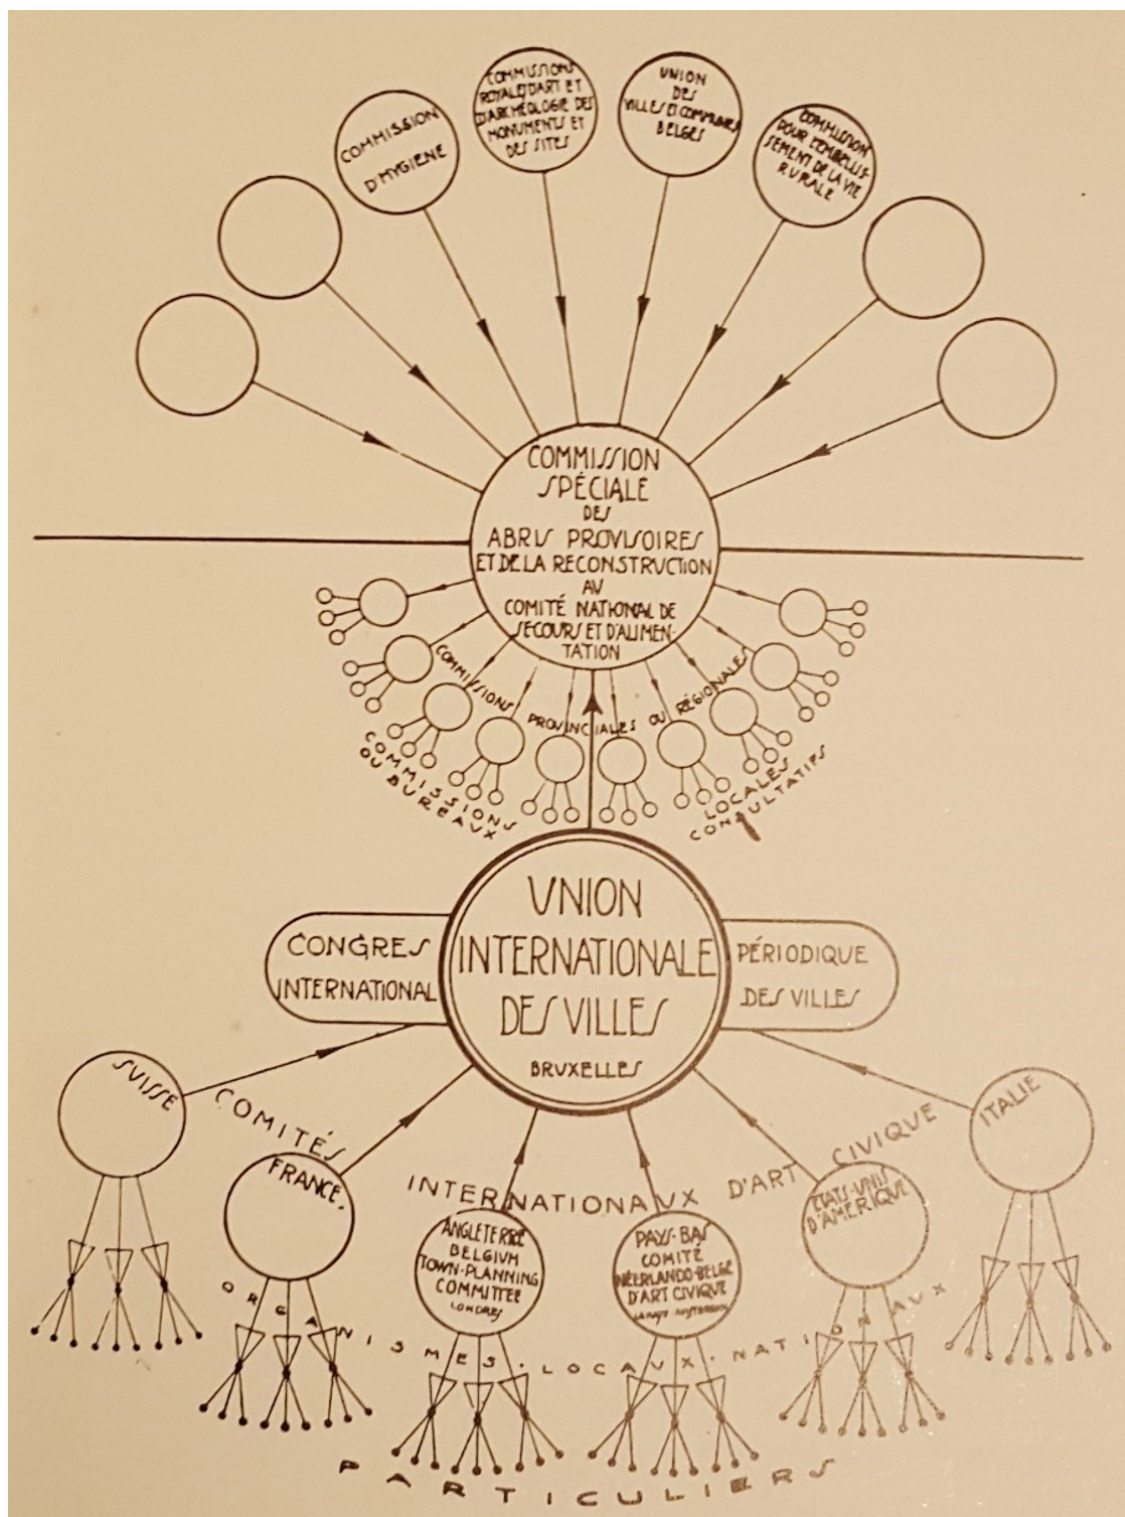 COMMISSION
D'HYGIENE
COMMISSIONS
ROYALES D'ART ET
D'ARCHÉOLOGIE DES
MONUMENTS ET
DES SITES
UNION
DES
VILLES ET COMMUNES
BELGES
COMMISSION
POUR L'EMBELLIS-
SEMENT DE LA VIE
RURALE
COMMISSION
SPÉCIALE
DES
ABRIS PROVISOIRES
ET DE LA RECONSTRUCTION
AU
COMITÉ NATIONAL DE
SECOURS ET D'ALIMEN-
TATION
COMMISSIONS PROVINCIALES OU RÉGIONALES
COMMISSIONS LOCALES
OU BUREAUX CONSULTATIFS
UNION
INTERNATIONALE
DES VILLES
BRUXELLES
CONGRES
INTERNATIONAL
PÉRIODIQUE
DES VILLES
COMITÉS INTERNATIONAUX D'ART CIVIQUE
SUISSE
FRANCE.
ANGLETERRE
BELGIUM
TOWN-PLANNING
COMMITTEE
LONDRES
PAYS-BAS
COMITÉ
NÉERLANDO-BELGE
D'ART CIVIQUE
ETATS-UNIS
D'AMÉRIQUE
ITALIE
ORGANISMES·LOCAUX·NATIONAUX
PARTICULIERS